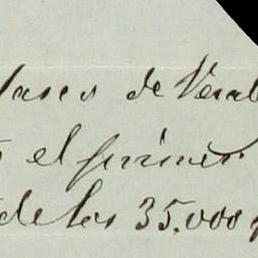 Vasco de Veral
s el primer
de los 35.000 p